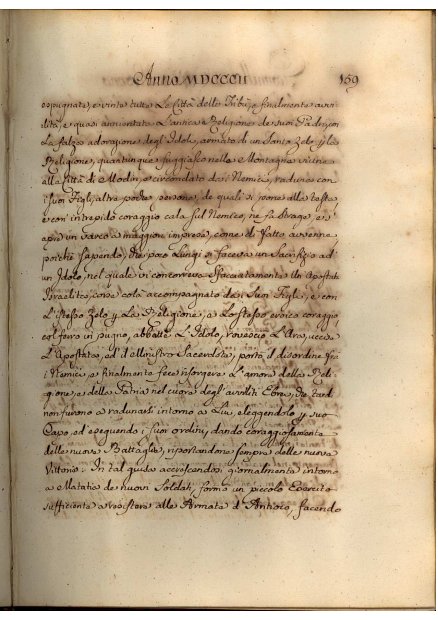 Anno MDCCCII 159
espugnate, e vinte tutte Le Città delle Tribù, e finalmente avvi
lita, e quasi annientata L'antica Religione de suoi Padri, con
La falza adorazione degl'Idoli, armato di un Santo Zelo per la
Religione, quantunque fuggiasco nelle Montagne vicine
alla Città di Modin, e circondato da i Nemici, radunò con
i suoi Figli, altre poche persone, de quali si pone alla testa,
e con intrepido coraggio cala sul Nemico, ne fa strage, e s'
aprì un varco a maggiori imprese, come di fatto avvenne,
poiché sapendo, che poco Lungi si faceva un Sacrifizio ad
un Idolo, nel quale vi concorreva sfacciatamente un Apostata
Israelita, corse colà accompagnato da i Suoi Figli, e con
L'istesso Zelo per La Religione, e Lo stesso eroico coraggio,
col ferro in pugno, abbatte L'Idolo, rovesciò L'Ara, uccise
L'Apostata, ed il Sacerdote, portò il disordine fra
i Nemici, e finalmente fece risorgere L'amore della Reli
gione, e della Patria nel cuore degl'avviliti Ebrei, che tardi
non furono a radunarsi intorno a Lui, eleggendolo per suo
Capo ed eseguendo i suoi ordini, dando coraggiosamente
delle nuove Battaglie, riportandone sempre delle nuove
Vittorie. In tal guisa accrescendosi giornalmente intorno
a Matatia de nuovi Soldati, formò un piccolo Esercito
sufficiente a resistere alle Armate d'Antioco, facendo